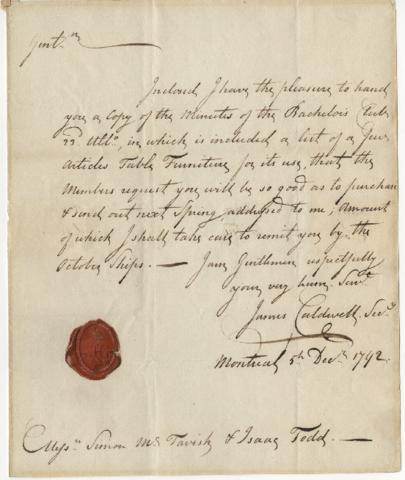 Gent.n
Inclosed I have the pleasure to hand
you a Copy of the Minutes of the Bachelors Club
22. Ult.o, in which is included a list of a few
Articles Table Furniture for its use, that the
Members request you will be so good as to purchase
& send out next Spring addressed to me, Amount
of which I shall take care to remit you by the
October Ships. — I am Gentlemen respectfully
your very hum. Serv.t
James Caldwell Sec.y
Montreal 5th Dec.r 1792.
Mess.rs Simon Mc Tavish & Isaac Todd. —